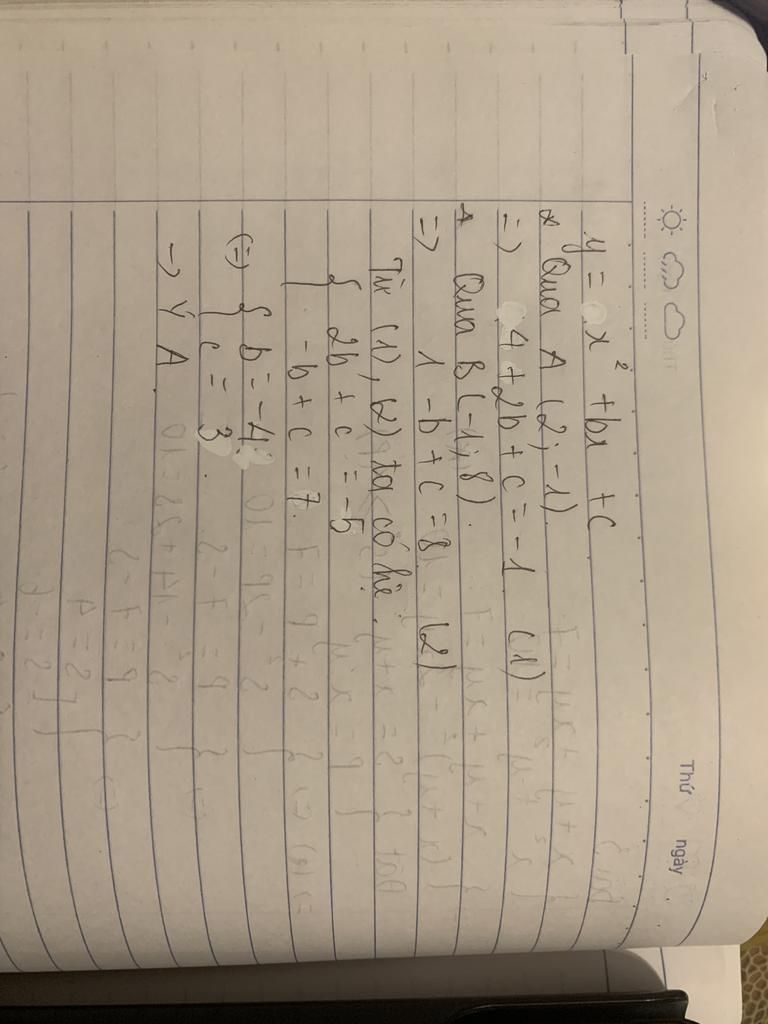 Thứ ngày
y = x² + bx + c
* Qua A (2; -1)
=> 4 + 2b + c = -1 (1)
* Qua B (-1; 8).
=> 1 - b + c = 8 (2)
Từ (1), (2) ta có hệ:
{ 2b + c = -5
{ -b + c = 7.
(=) { b = -4.
{ c = 3.
→ Ý A.